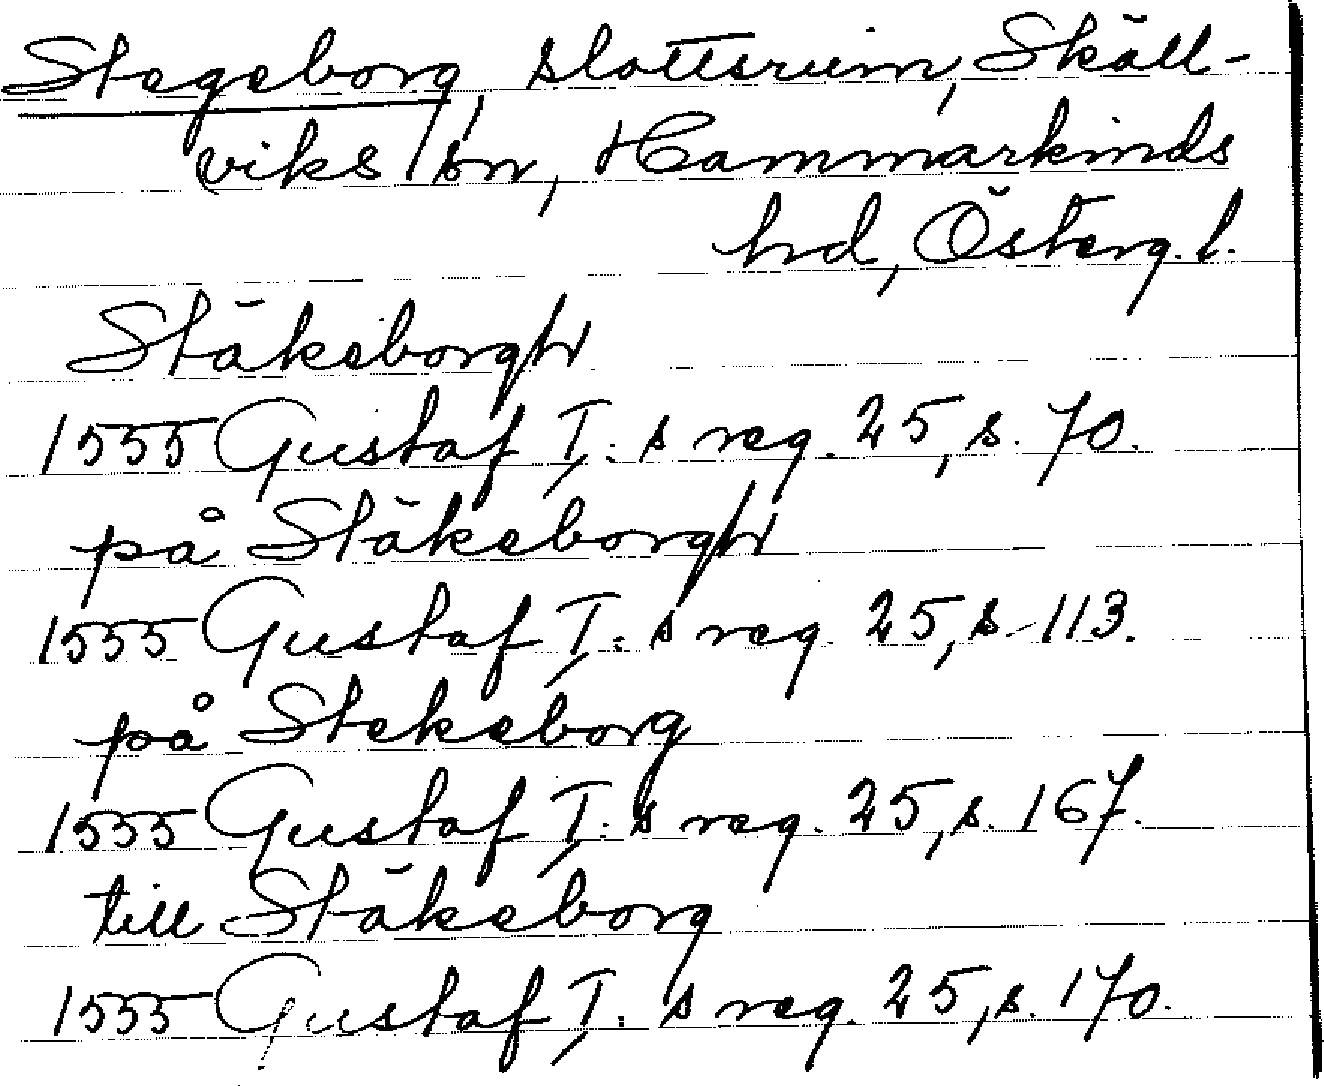 Stegeborg, slottsruin, Skäll-
viks sn, Hammarkinds
hd, Österg. l.
Stäkeborgh
1555 Gustaf I: s reg. 25, s. 70.
på Stäkeborgh
1555 Gustaf I: s reg. 25, s. 113.
på Stekeborg
1555 Gustaf I: s reg. 25, s. 167.
till Stäkeborg
1555 Gustaf I: s reg. 25, s. 170.